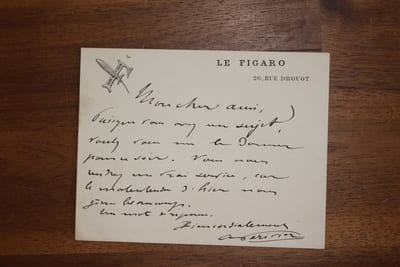 LE FIGARO
26, RUE DROUOT
Mon cher ami,
Puisque vous avez un sujet,
voulez vous me le donner
pour ce soir. Vous nous
rendrez un vrai service, car
le malentendu d'hier nous
gêne beaucoup.
Un mot réponse.
Bien cordialement